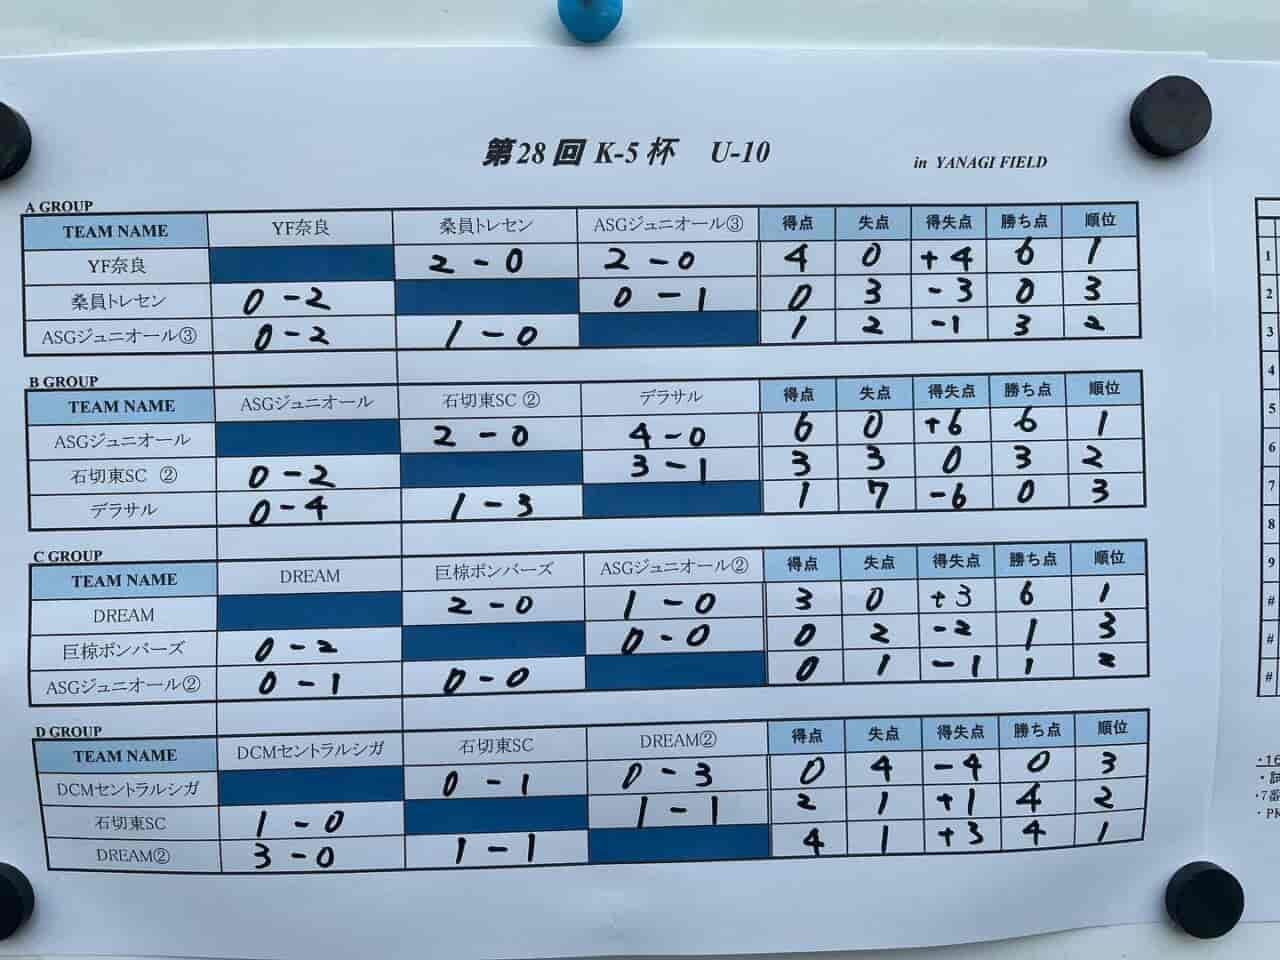 第28回 K-5 杯 U-10
in YANAGI FIELD
A GROUP
TEAM NAME YF奈良 桑員トレセン ASGジュニオール③ 得点 失点 得失点 勝ち点 順位
YF奈良 2-0 2-0 4 0 +4 6 1
桑員トレセン 0-2 0-1 0 3 -3 0 3
ASGジュニオール③ 0-2 1-0 1 2 -1 3 2
B GROUP
TEAM NAME ASGジュニオール 石切東SC ② デラサル 得点 失点 得失点 勝ち点 順位
ASGジュニオール 2-0 4-0 6 0 +6 6 1
石切東SC ② 0-2 3-1 3 3 0 3 2
デラサル 0-4 1-3 1 7 -6 0 3
C GROUP
TEAM NAME DREAM 巨椋ボンバーズ ASGジュニオール② 得点 失点 得失点 勝ち点 順位
DREAM 2-0 1-0 3 0 +3 6 1
巨椋ボンバーズ 0-2 0-0 0 2 -2 1 3
ASGジュニオール② 0-1 0-0 0 1 -1 1 2
D GROUP
TEAM NAME DCMセントラルシガ 石切東SC DREAM② 得点 失点 得失点 勝ち点 順位
DCMセントラルシガ 0-1 0-3 0 4 -4 0 3
石切東SC 1-0 1-1 2 1 +1 4 2
DREAM② 3-0 1-1 4 1 +3 4 1
1
2
3
4
5
6
7
8
9
#
#
#
・16
・試
・7番
・PK